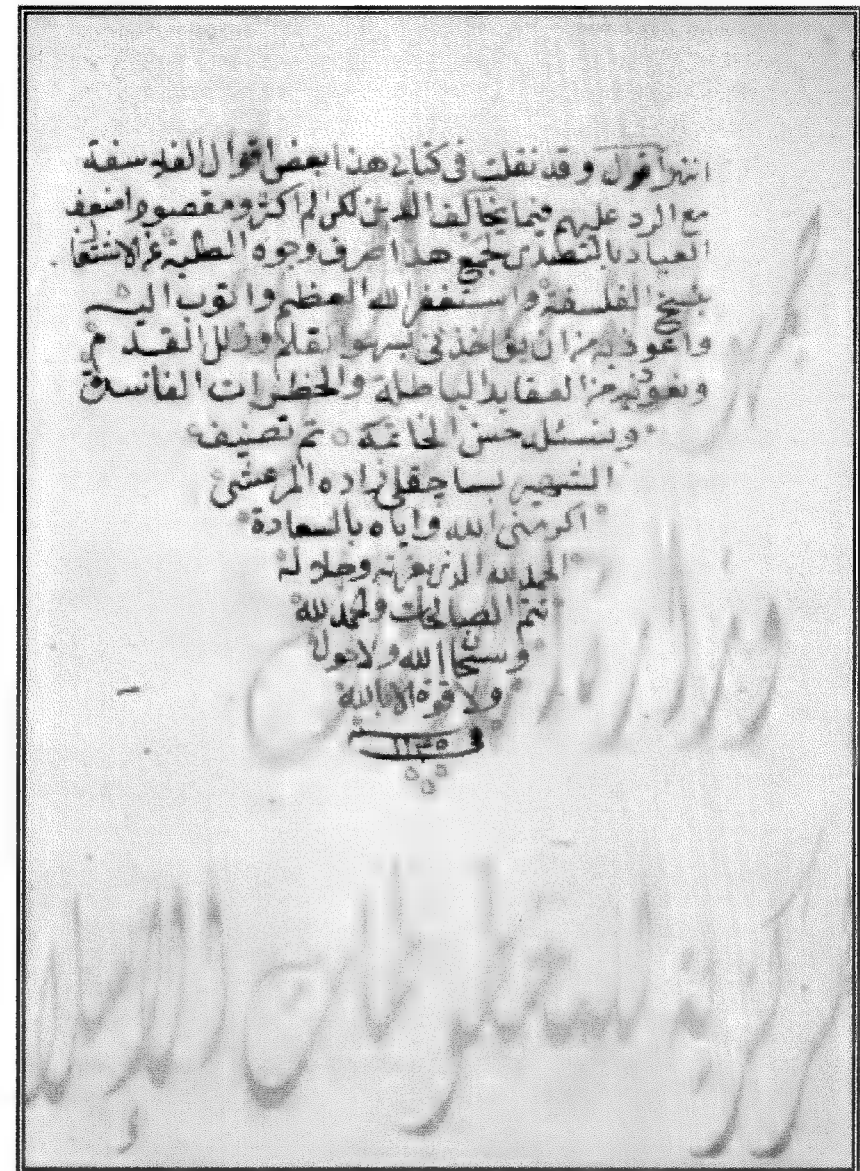 انتهى اقول وقد نقلت فى كتابى هذا بعض اقوال الفلاسفة
مع الرد عليهم فيما يخالف الدين لكن لم اكثر ومقصودا ضعف
العباد بالتصدى لجمع هذا صرف وجوه الطلبة عن الاشتغال
بنسخ الفلسفة واستغفر الله العظيم واتوب اليه
واعوذ به من ان يؤاخذنى بسهو القلم وزلل القدم
ونعوذ به من العقايد الباطلة والخطرات الفاسدة
ونسئل حسن الخاتمة تم تصنيف
الشهير بساچقلى زاده المرعشى
اكرمنى الله واياه بالسعادة
الحمد لله الذى بعزته وجلاله
تتم الصالحات والحمد لله
وسبحان الله ولا حول
ولا قوة الا بالله
١١٣٥
مركز
للمخطوطات